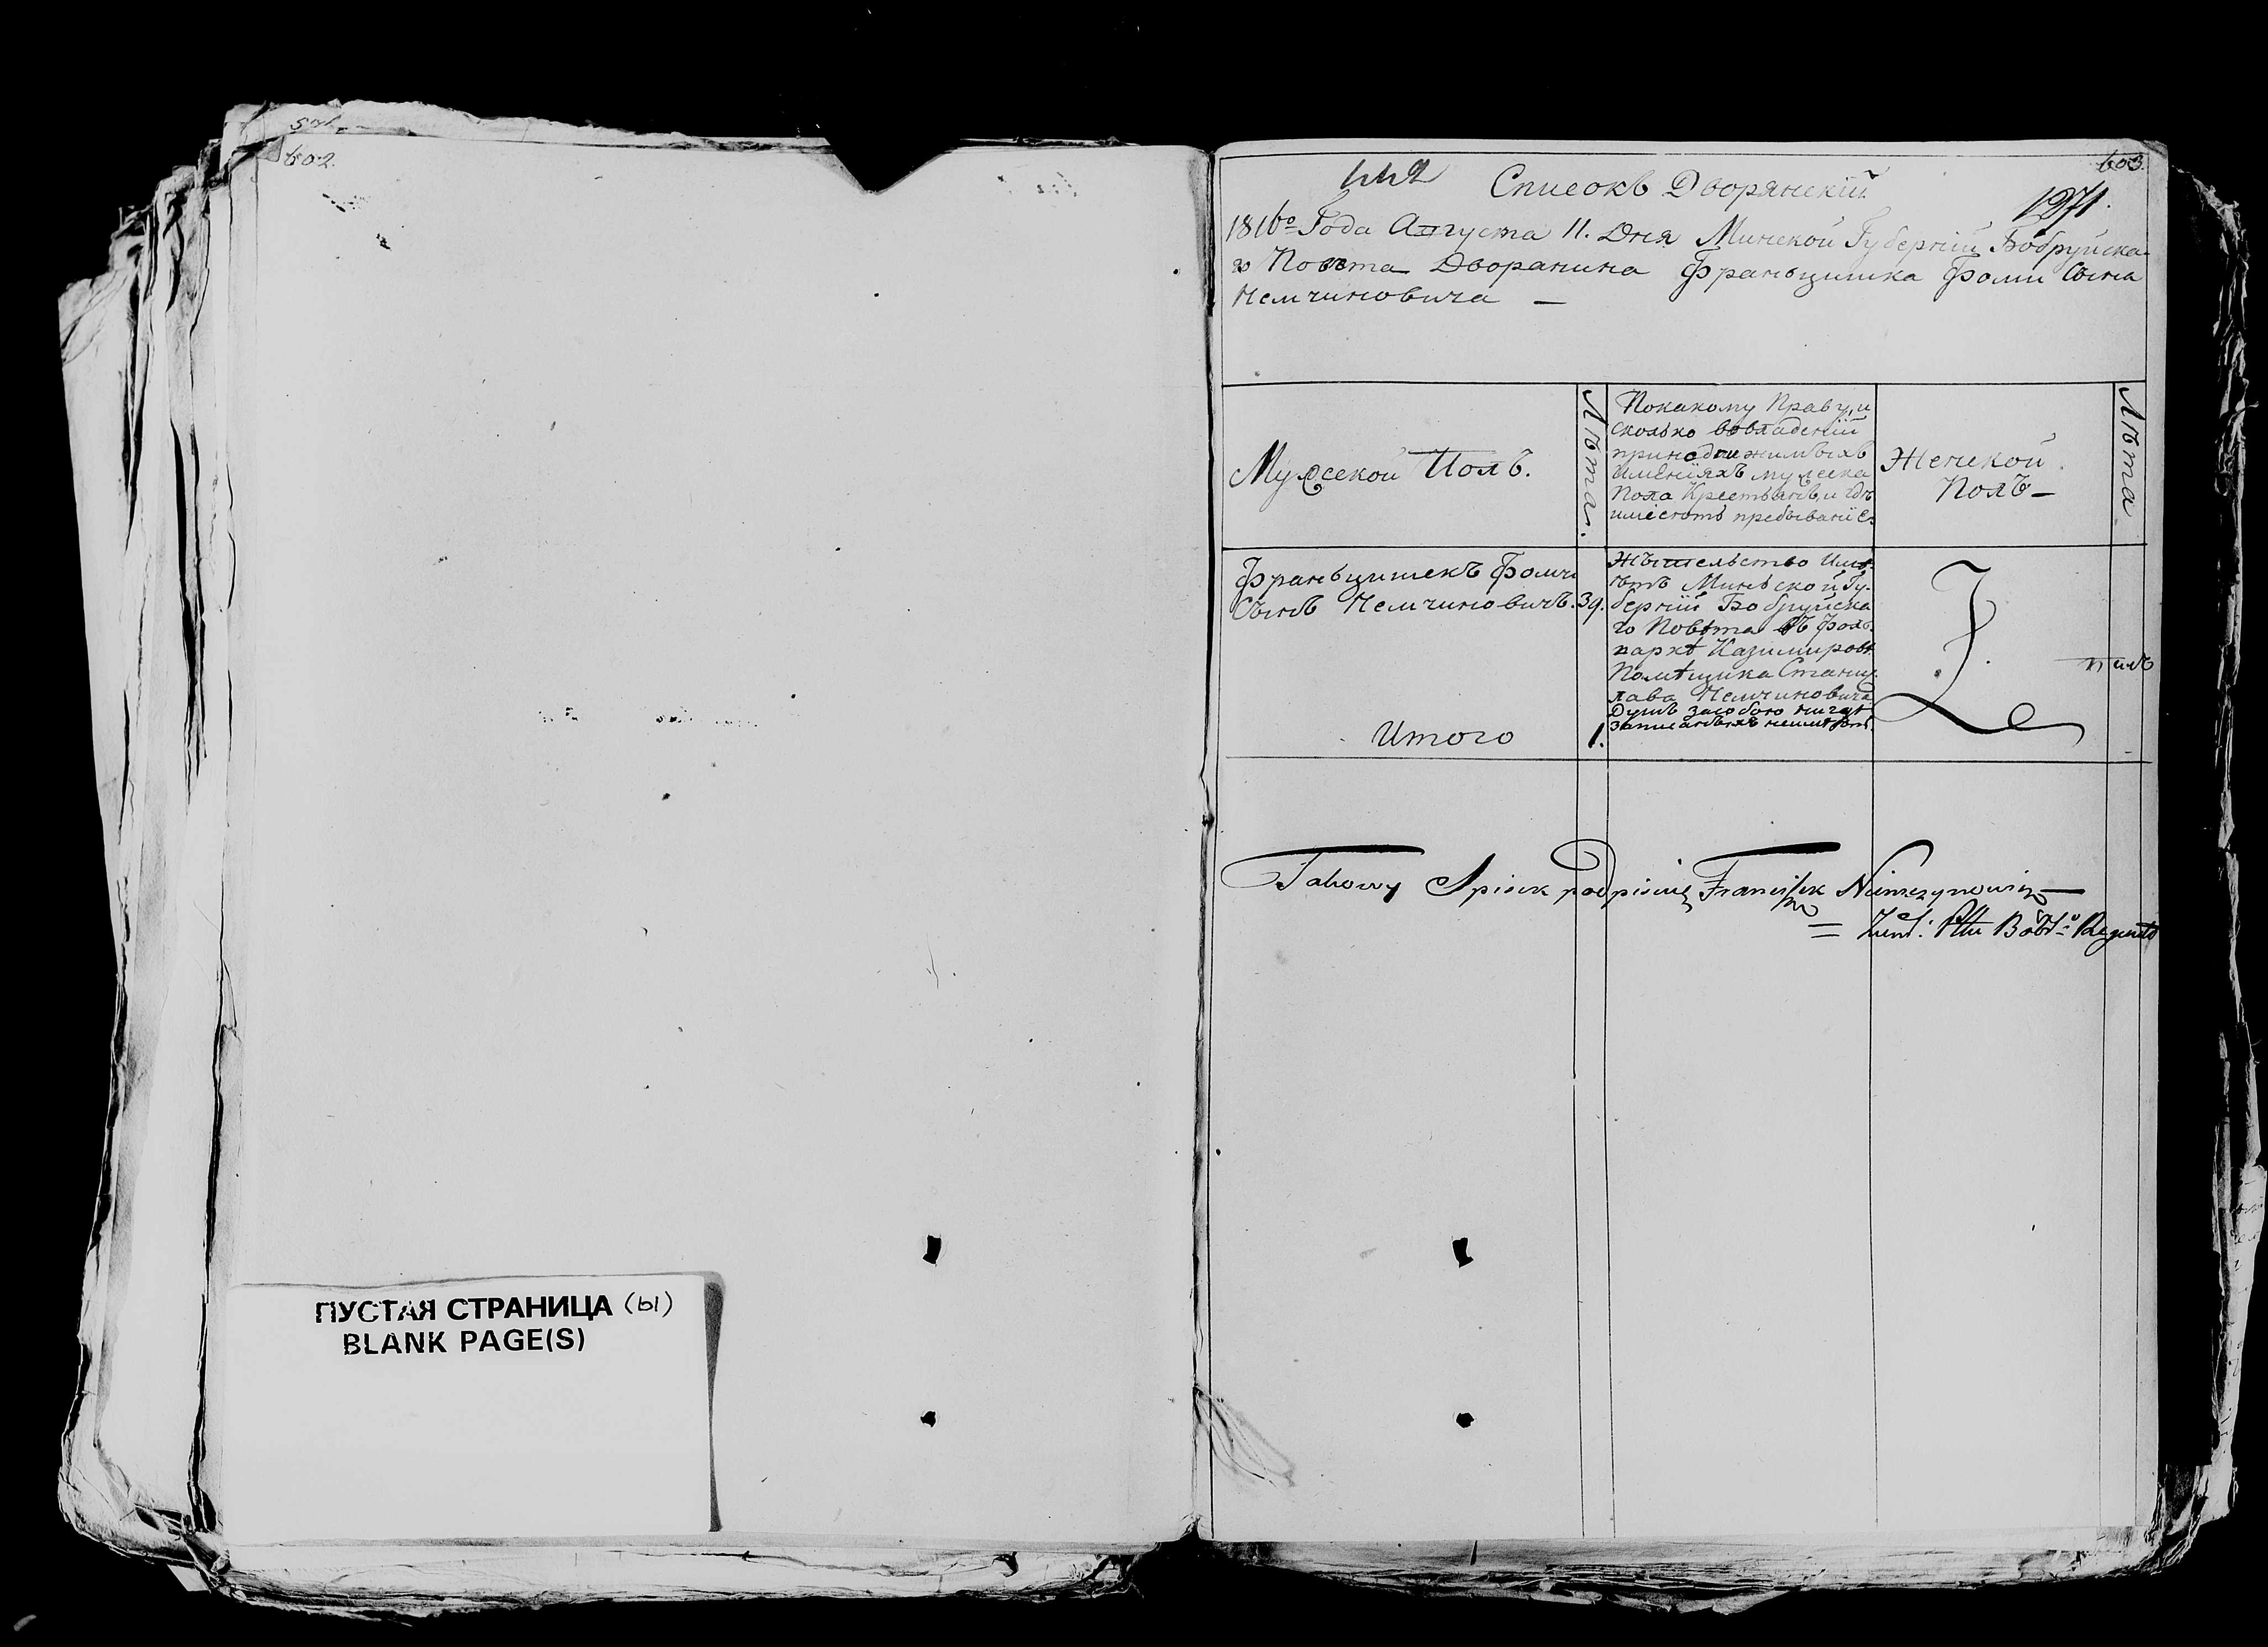 602.
ПУСТАЯ СТРАНИЦА (ы)
BLANK PAGE(S)
603.
442
Списокъ Дворянскій
1271.
1816го Года Августа 11. Дня Минской Губерніи Бобруйска-
го Повѣта Дворанина Франьцишка Фоми Сына
Немчиновича —
Мужсекой Полъ.
Лѣта.
Покакому Праву, и
сколько вовладеніи
принадлежимыхъ
Имѣніяхъ мужеска
Пола Крестьянъ, и гдѣ
имѣютъ пребываніе.
Женской
Полъ —
Лѣта
Франьцишекъ Фоми
Сынъ Немчиновичъ.
39.
Жытельство Имѣ-
етъ Миньской Гу-
берніи Бобруйска
го Повѣта въ Фоль-
варкѣ Казимировѣ
Помѣщика Станис-
лава Немчиновича
Душъ засобою нигдѣ
записанныхъ неимѣетъ.
Итого
1.
Takowy Spisek podpisuię Franciszek Niemczynowicz —
= Ziem: Pttu Bobr:о Regent